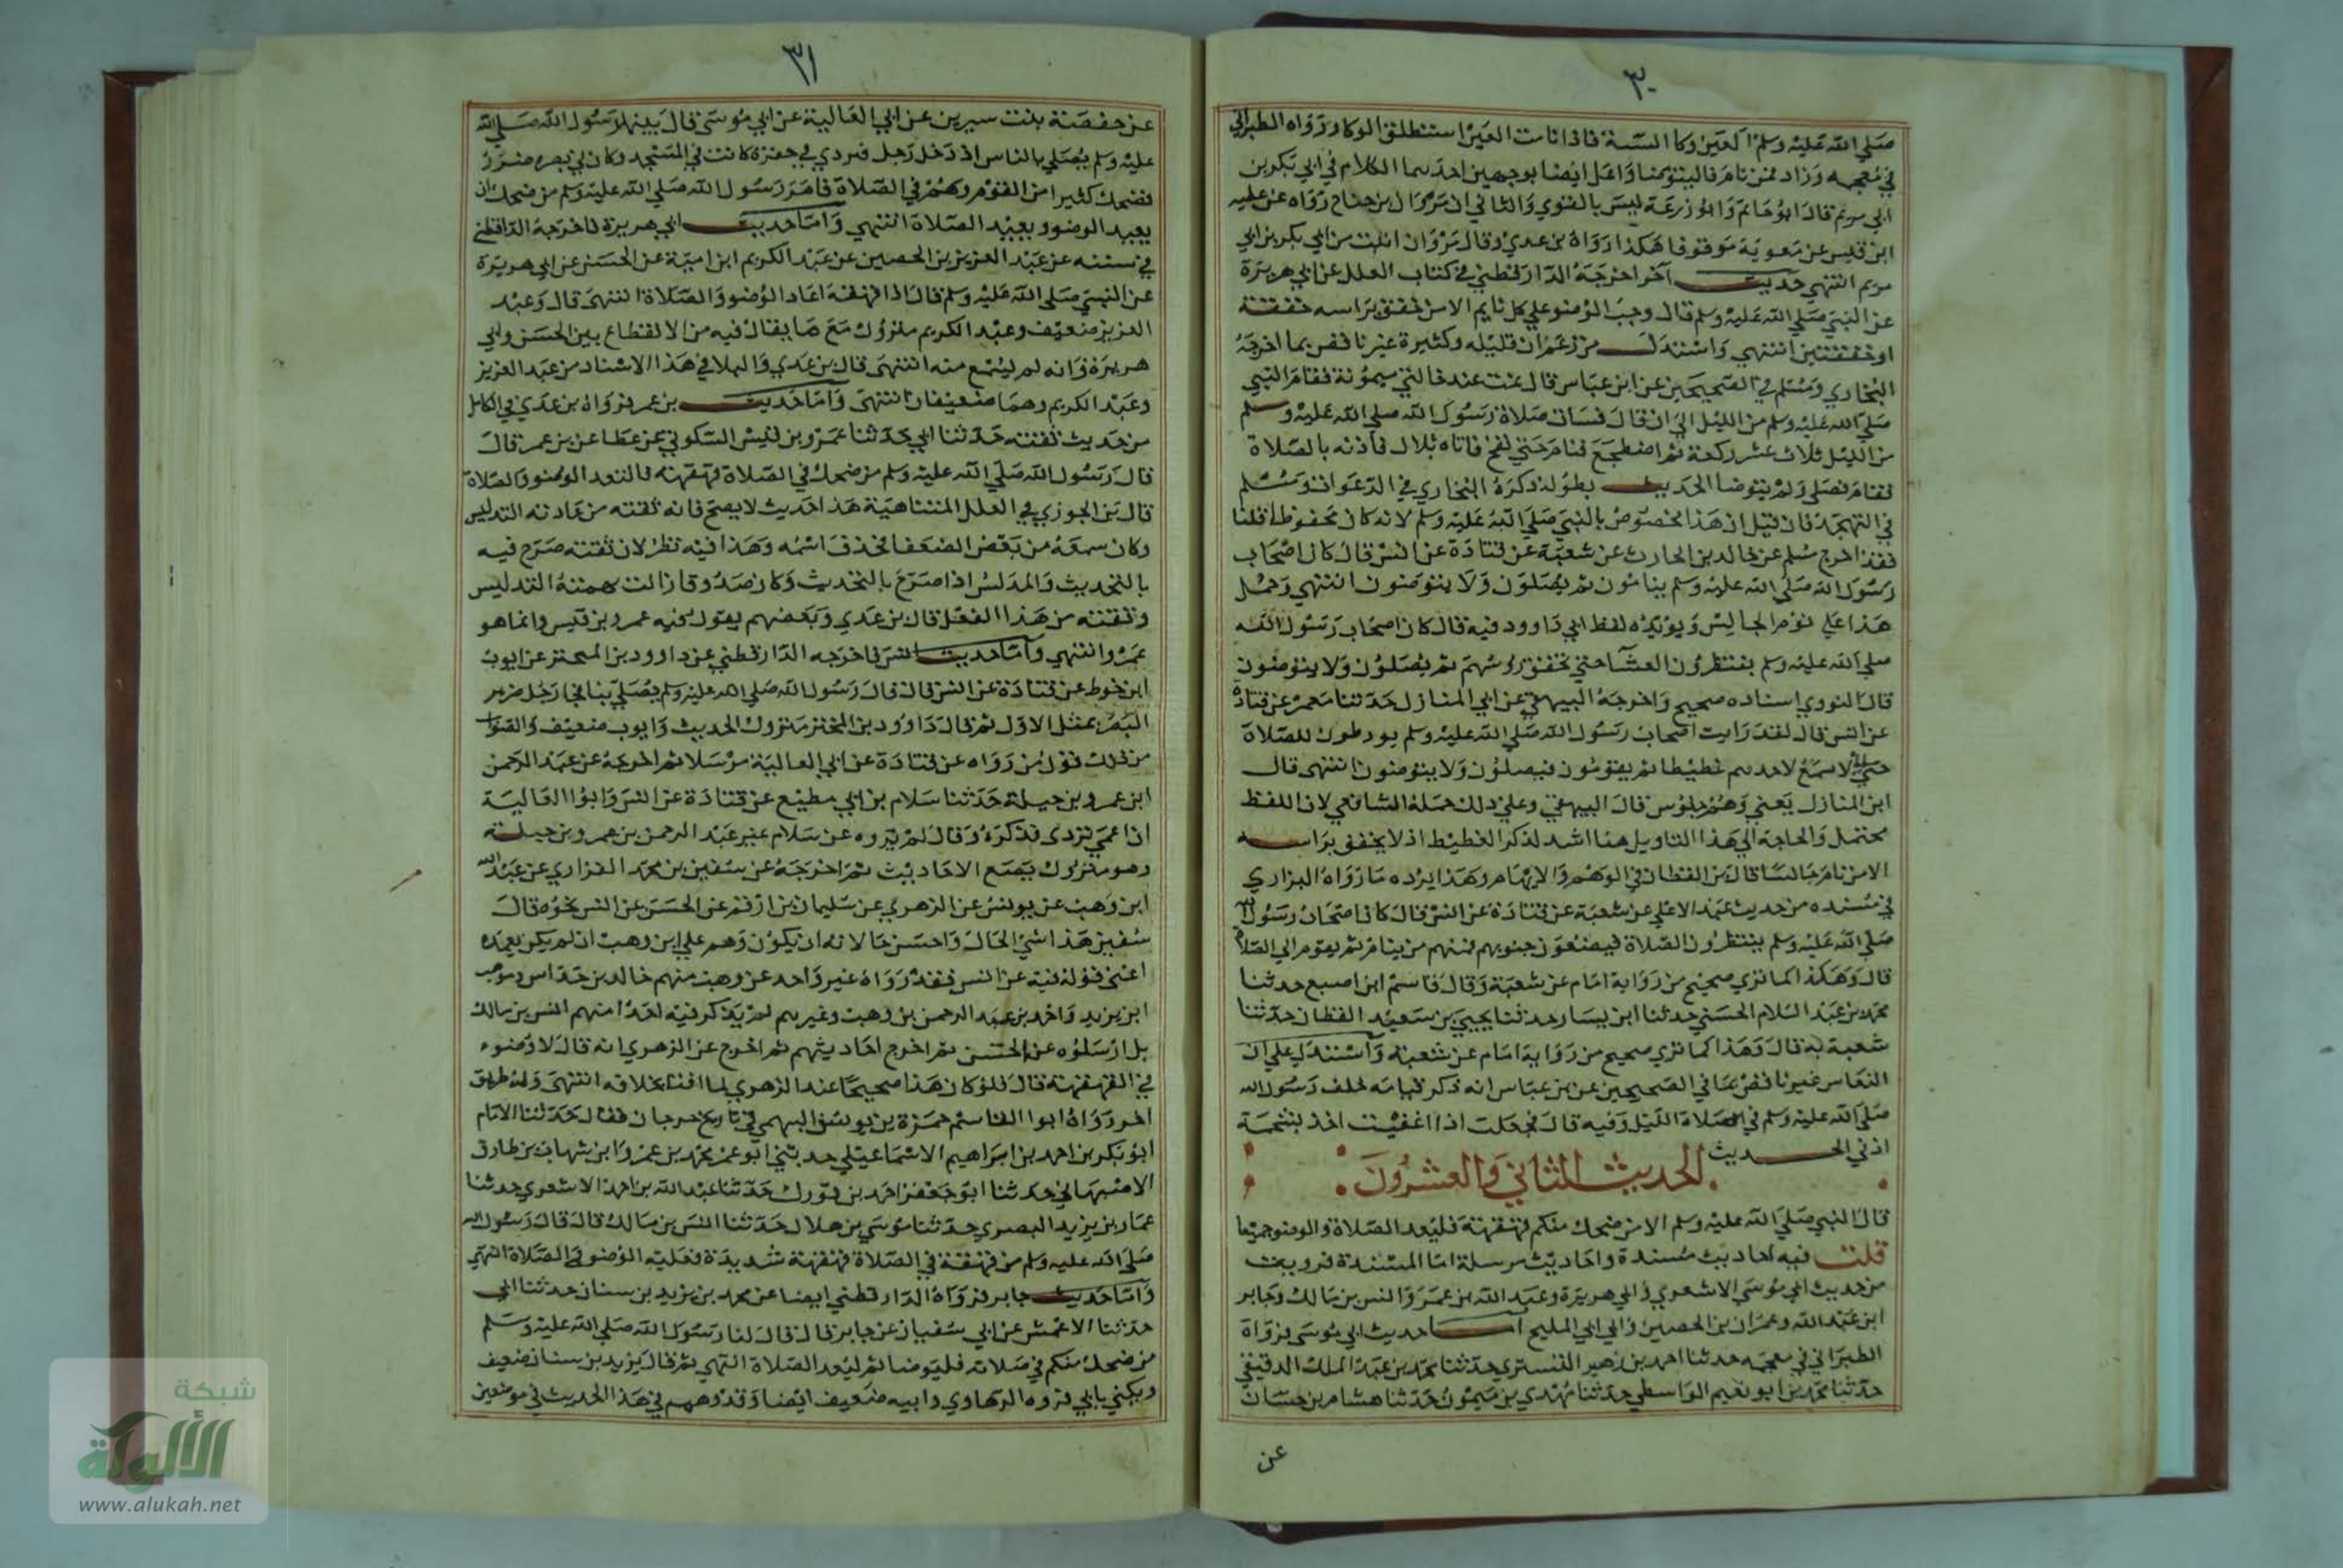 ٣٠
صلي الله عليه وسلم العين وكا السته فاذا نامت العين استطلق الوكا ورواه الطبراني
في معجمه وزاد فمن نام فاليتوضا واعل ايضا بوجهين احدهما الكلام في ابي بكر بن
ابي مريم قال ابو حاتم وابو زرعة ليس بالقوي والثاني ان مروان بن جناح رواه عن عطيه
ابن قليس عن معوية موقوفا هكذا رواه بن عدي وقال مروان اثبت من ابي بكر بن ابي
مريم انتهي حديث آخر اخرجه الدارقطني في كتاب العلل عن ابي هريرة
عن النبي صلي الله عليه وسلم قال وجب الوضو علي كل نايم الا من خفق براسه خفقة
او خفقتين انتهي واستدل من زعم ان قليله وكثيرة غير ناقض بما اخرجه
البخاري ومسلم في الصحيحين عن ابن عباس قال نمت عند خالتي ميمونة فقام النبي
صلي الله عليه وسلم من الليل الي ان قال فسان صلاة رسول الله صلي الله عليه وسلم
من الليل ثلاث عشر ركعة ثم اضطجع فنام حتي نفخ فاتاه بلال فآذنه بالصلاة
فقام فصلي ولم يتوضا الحديث بطوله ذكره البخاري في الدعوات ومسلم
في التهجد فان قيل ان هذا مخصوص بالنبي صلي الله عليه وسلم لانه كان محفوظا قلنا
فقد اخرج مسلم عن خالد بن الحارث عن شعبة عن قتادة عن انس قال كان اصحاب
رسول الله صلي الله عليه وسلم ينامون ثم يصلون ولا يتوضون انتهي وحمل
هذا علي نوم الجالس ويويده لفظ ابي داوود فيه قال كان اصحاب رسول الله
صلي الله عليه وسلم ينتظرون العشآ حتي تخفق رؤسهم ثم يصلون ولا يتوضون
قال النووي اسناده صحيح واخرجه البيهقي عن ابي المنازل حدثنا معمر عن قتادة
عن انس قال لقد رايت اصحاب رسول الله صلي الله عليه وسلم يوقظون للصلاة
حتي لاسمع لاحدهم غطيطا ثم يقومون فيصلون ولا يتوضون انتهى قال
ابن المنازل يعني وهم جلوس قال البيهقي وعلي ذلك حمله الشافعي لان اللفظ
محتمل والحاجة الي هذا التاويل هنا اشد لذكر الغطيط اذ لا يخفق براسه
الا من نام جالسا قال بن القطان في الوهم والايهام وهذا يرده ما رواه البزاري
في مسنده من حديث عبد الاعلي عن شعبة عن قتادة عن انس قال كان اصحاب رسول الله
صلي الله عليه وسلم ينتظرون الصلاة فيضعون جنوبهم فمنهم من ينام ثم يقوم الي الصلاة
قال وهكذا كما تري صحيح من رواية امام عن شعبة وقال قاسم ابن اصبع حدثنا
محمد بن عبد السلام الخشني حدثنا ابن بسار حدثنا يحيي بن سعيد القطان حدثنا
شعبة به قال وهذا كما تري صحيح من رواية امام عن شعبة واستدل علي ان
النعاس غير ناقض بما في الصحيحين عن بن عباس انه ذكر قيامه خلف رسول الله
صلي الله عليه وسلم في صلاة الليل وفيه قال فجعلت اذا اغفيت اخذ بشحمة
اذني الحديث الحديث الثاني والعشرون
قال النبي صلي الله عليه وسلم الا من ضحك منكم قهقهة فليعد الصلاة والوضو جميعا
قلت فيه احاديث مسندة واحاديث مرسلة اما المسندة فرويت
من حديث ابي موسي الاشعري وابي هريرة وعبد الله بن عمر وانس بن مالك وجابر
ابن عبد الله وعمران بن الحصين وابي المليح اما حديث ابي موسي فرواة
الطبراني في معجمه حدثنا احمد بن زهير التستري حدثنا محمد بن عبد الملك الدقيقي
حدثنا محمد بن ابو نعيم الواسطي حدثنا مهدي بن ميمون حدثنا هشام بن حسان
عن
٣١
عن حفصة بنت سيرين عن ابي العالية عن ابي موسى قال بينما رسول الله صلي الله
عليه وسلم يصلي بالناس اذ دخل رجل فتردي في حفرة كانت في المسجد وكان في بصره ضرر
فضحك كثيرا من القوم وهم في الصلاة فامر رسول الله صلي الله عليه وسلم من ضحك ان
يعيد الوضوو ويعيد الصلاة انتهي واما حديث ابي هريرة فاخرجه الداقطني
في سننه عن عبد العزيز بن الحصين عن عبد الكريم ابن امية عن الحسن عن ابي هريرة
عن النبي صلي الله عليه وسلم قال اذا قهقه اعاد الوضوو والصلاة انتهى قال وعبد
العزيز ضعيف وعبد الكريم متروك مع ما يقال فيه من الانقطاع بين الحسن وابي
هريرة فانه لم يسمع منه انتهى قال بن عدي والبلا في هذا الاسناد من عبد العزيز
وعبد الكريم وهما ضعيفان انتهى واما حديث بن عمر فرواه بن عدي في الكامل
من حديث بقيته حدثنا ابي حدثنا عمرو بن قيس السكوني عن عطا عن بن عمر قال
قال رسول الله صلي الله عليه وسلم من ضحك في الصلاة قهقهة فاليعد الوضو والصلاة
قال بن الجوزي في العلل المتناهية هذا حديث لا يصح فانه بقيته من عادته التدليس
وكان سمعه من بعض الضعفا فحذف اسمه وهذا فيه نظر لان بقيته صرح فيه
بالتحديث والمدلس اذا صرح بالتحديث وكان صدوقا زالت همته التدليس
وبقيته من هذا الفعل قال بن عدي وبعضهم يقول فيه عمر وبن قيس وانما هو
عمرو انتهي واما حديث انس فاخرجه الدارقطني عن داوود بن المحبر عن ايوب
ابن خوط عن قتادة عن انس قال قال رسول الله صلي الله عليه وسلم يصلي بنا فجا رجل ضرير
البصر بمثل الاول ثم قال داوود بن المحبر متروك الحديث وايوب ضعيف والصواب
من ذلك قول من رواه عن قتادة عن ابي العالية مرسلا ثم اخرجه عن عبد الرحمن
ابن عمرو بن جبلة حدثنا سلام بن ابي مطيع عن قتادة عن انس وابوا العالية
ان اعمي تردى فذكره وقال لم يروه عن سلام غير عبد الرحمن بن عمرو بن جبلة
وهو متروك يضع الاحاديث ثم اخرجه عن سفين بن محمد الفزاري عن عبد الله
ابن وهب عن يونس عن الزهري عن سليمان بن ارقم عن الحسن عن انس نحوه قال
سفين هذا سيي الحال واحسن حالاته ان يكون وهم علي ابن وهب ان لم يكن يعمده
اعني قوله فيه عن انس فقد رواه غير واحد عن وهب منهم خالد بن خداس وموهب
ابن يزيد واحمد بن عبد الرحمن بن وهب وغيرهم لم يذكر فيه احدا منهم انس بن مالك
بل ارسلوه عن الحسن ثم اخرج احاديثهم ثم اخرج عن الزهري انه قال لا وضوء
في القهقهة قال فلو كان هذا صحيحا عند الزهري لما افتا بخلافه انتهى وله طريق
اخر رواه ابوا القاسم حمزة بن يوسف السهمي في تاريخ جرجان فقال حدثنا الامام
ابو بكر بن احمد بن ابراهيم الاسماعيلي حدثني ابو عمر محمد بن عمر وابن شهاب بن طارق
الاصبهاني حدثنا ابو جعفر احمد بن فورك حدثنا عبد الله بن احمد الاشعري حدثنا
عمار بن يزيد البصري حدثنا موسي بن هلال حدثنا انس بن مالك قال قال رسول الله
صلي الله عليه وسلم من قهقة في الصلاة قهقهة شديدة فعليه الوضو والصلاة انتهي
واما حديث جابر فرواه الدارقطني ايضا عن محمد بن يزيد بن سنان حدثنا ابي
حدثنا الاعمش عن ابي سفيان عن جابر قال قال لنا رسول الله صلي الله عليه وسلم
من ضحك منكم في صلاته فليوضا ثم ليعد الصلاة انتهي ثم قال يزيد بن سنان ضعيف
ويكني بابي فروه الرهاوي وابيه ضعيف ايضا وقد وهم في هذا الحديث في موضعين
شبكة
الألوكة
www.alukah.net